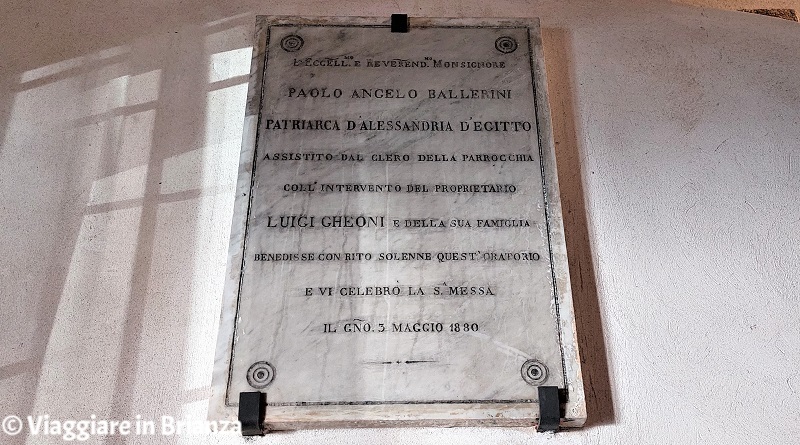 L'ECCELL.MO E REVEREND.MO MONSIGNORE
PAOLO ANGELO BALLERINI
PATRIARCA D'ALESSANDRIA D'EGITTO
ASSISTITO DAL CLERO DELLA PARROCCHIA
COLL'INTERVENTO DEL PROPRIETARIO
LUIGI GHEONI E DELLA SUA FAMIGLIA
BENEDISSE CON RITO SOLENNE QUEST'ORATORIO
E VI CELEBRÒ LA S.A MESSA
IL GÑO. 3 MAGGIO 1880
© Viaggiare in Brianza